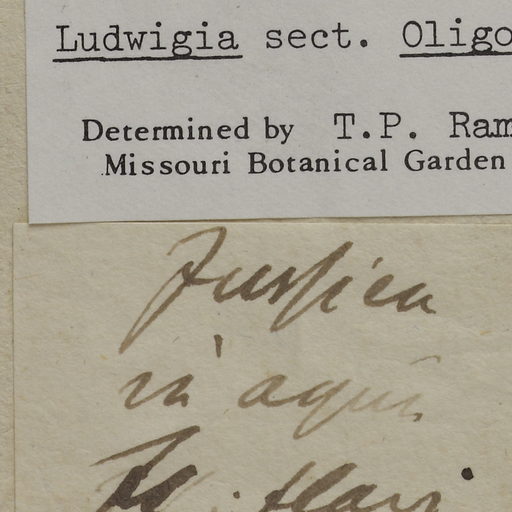 Ludwigia sect. Oligo
Determined by T.P. Ram
Missouri Botanical Garden
Jussieu
in aquis
Fl. flavi